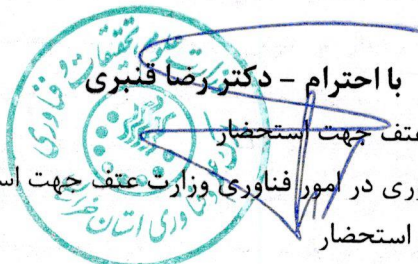 با احترام – دکتر رضا قنبری
عتف جهت استحضار
وری در امور فناوری وزارت عتف جهت اس
استحضار
وزارت علوم تحقیقات و فناوری
فناوری استان خراسان